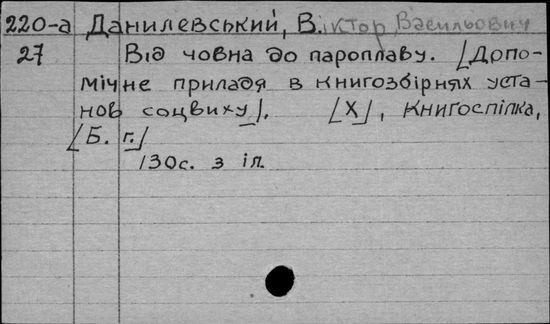 220-а Данилевський, В.іктор Васильович
27 Від човна до пароплаву. [Допо-
мічне приладя в книгозбірнях уста-
нов соцвиху]. [Х], Книгоспілка,
[Б. г.]
130с. з іл.